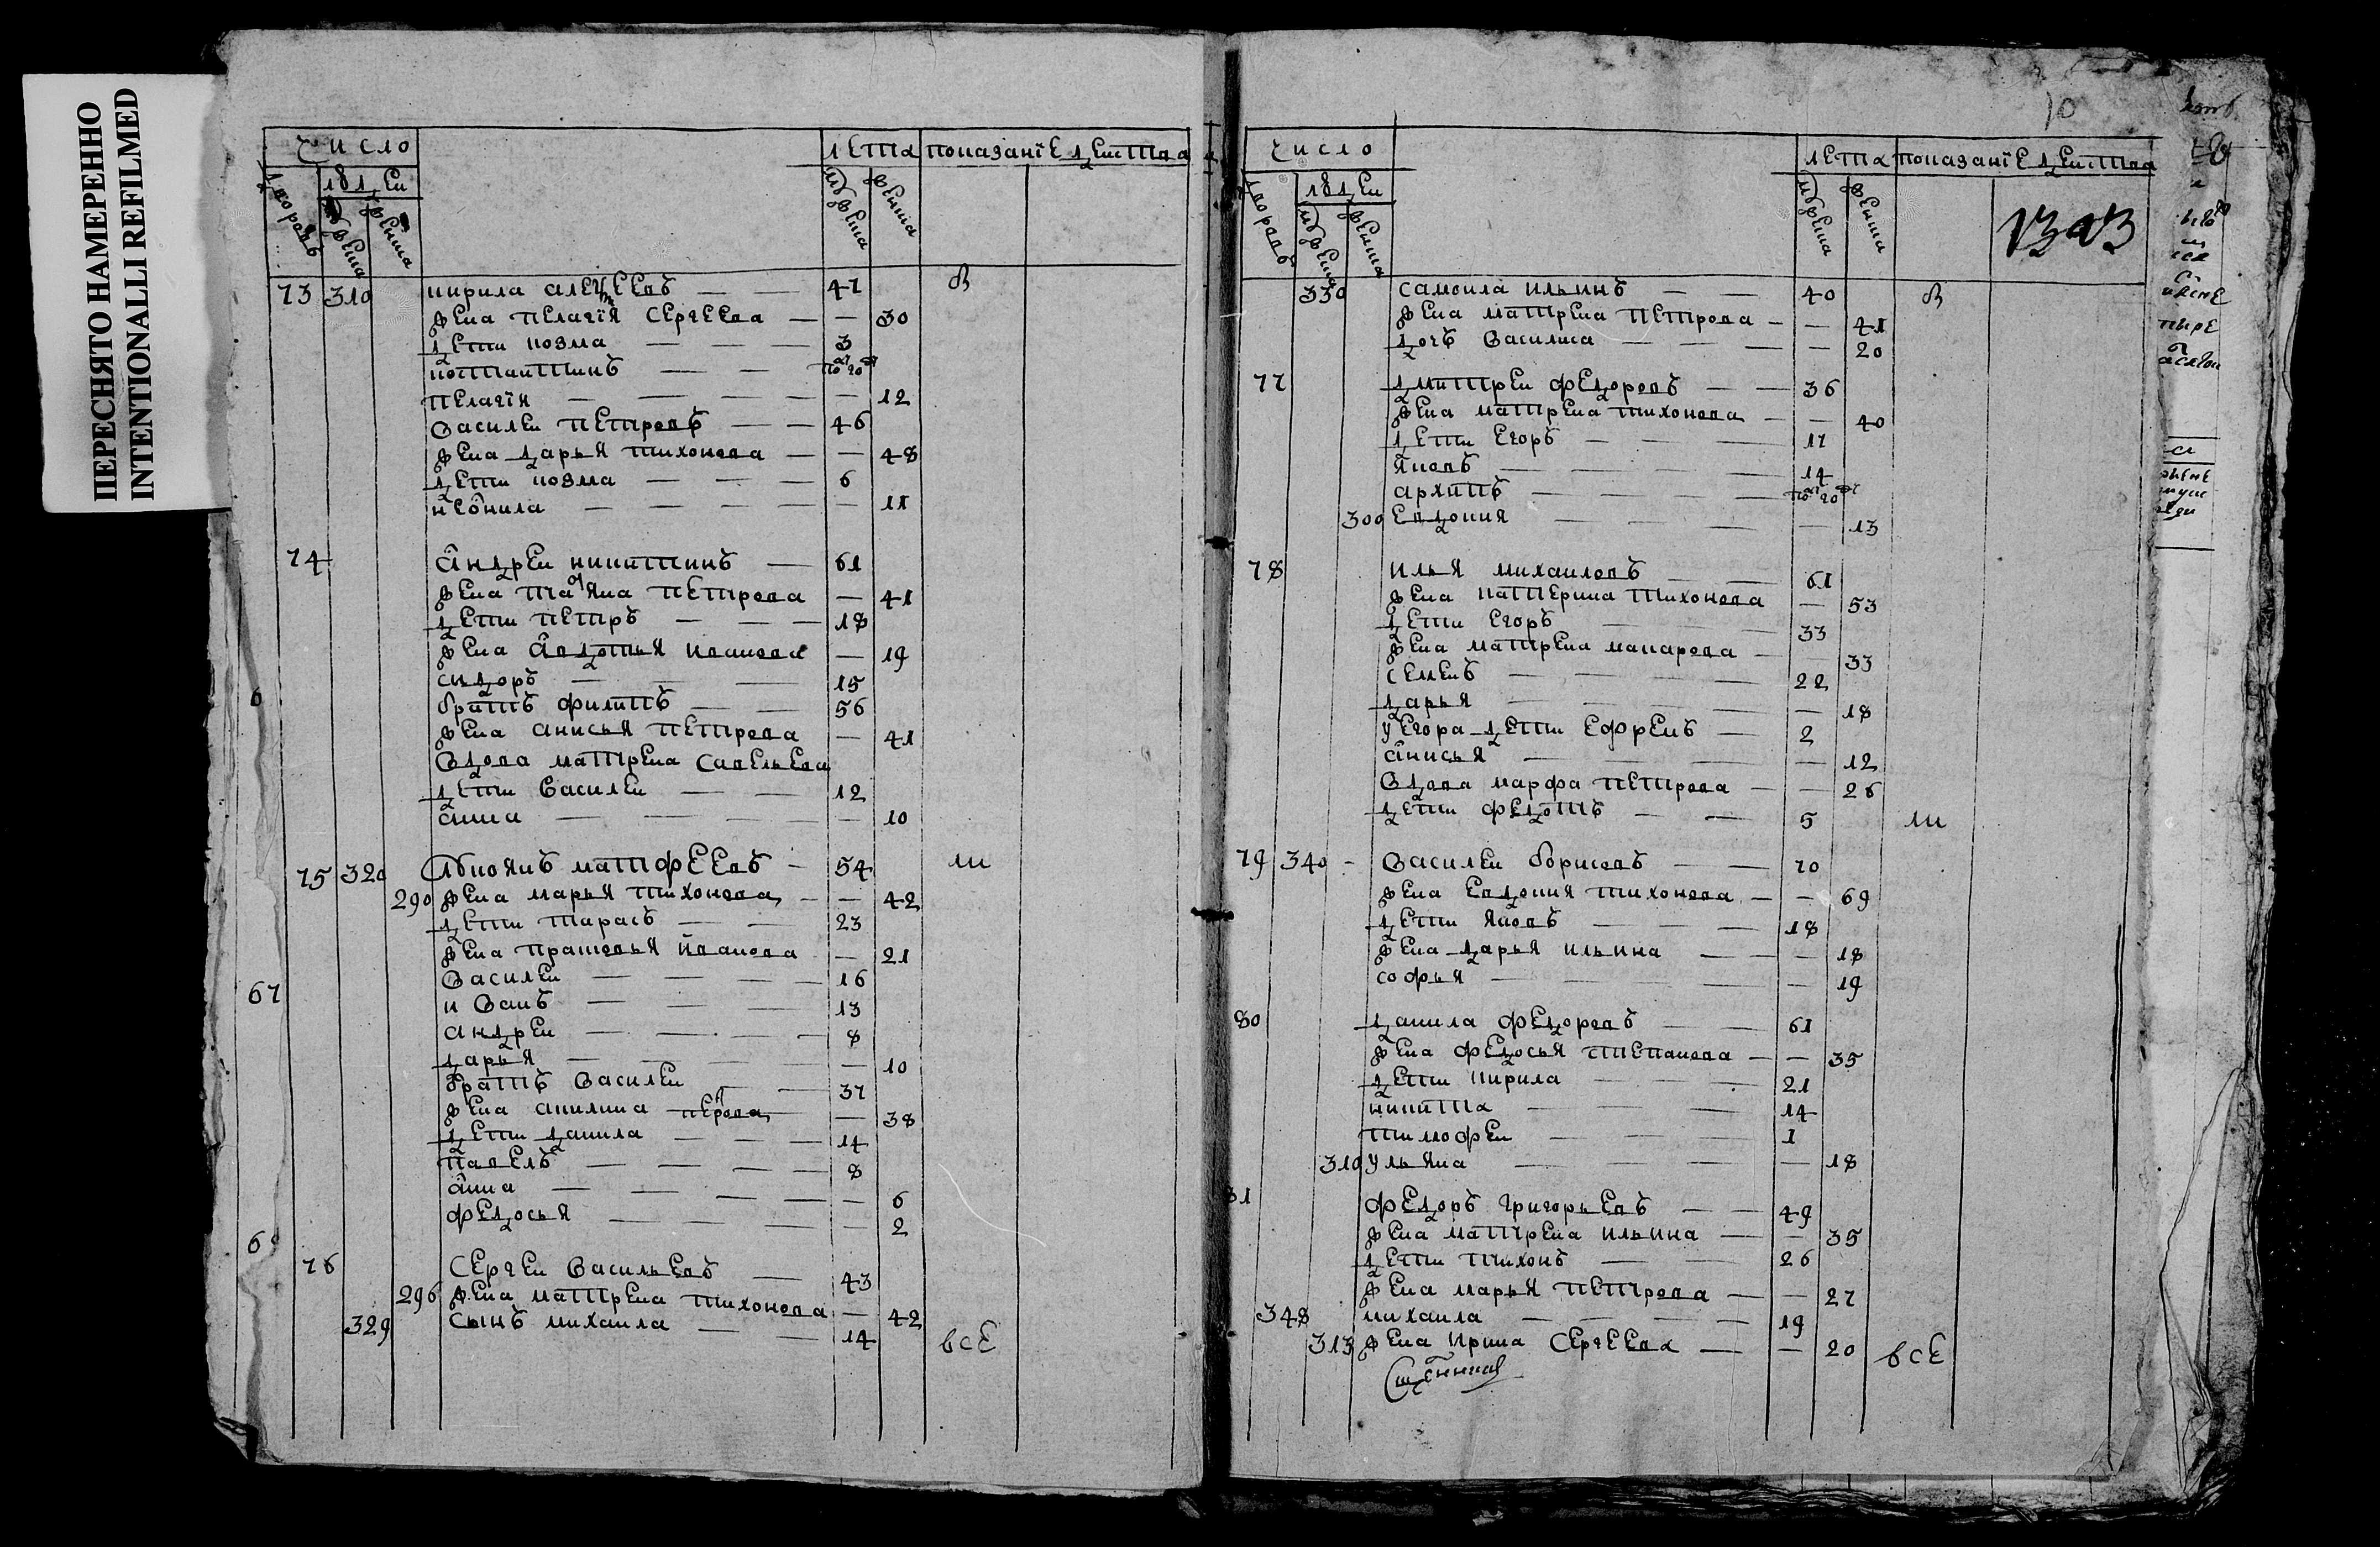 ПЕРЕСНЯТО НАМЕРЕННО
INTENTIONALLI REFILMED
число лета показанїе действа
дворовъ людей
мужеска женска
мужеска женска
73 310 кирила алексеевъ — — 47 в
жена пелагїя сергеева — — 30
дети козма — — — 3
костантинъ — — по 20
пелагїя — — — — — 12
василеи петровъ — — 46
жена дарья тихонова — — 48
дети козма — — — 6
неонила — — — — — 11
74 андреи никитинъ — 61
жена татьяна петрова — 41
дети петръ — — — 18
жена авдотья иванова — 19
сидоръ — — — 15
братъ филипъ — — 56
жена анисья петрова — 41
вдова матрена савельева
дети василеи — — 12
анна — — — — — 10
75 320 матфеевъ — 54 ш
290 жена марья тихонова — — 42
дети тарасъ — — 23
жена прасковья иванова — 21
василеи — — — — 16
иванъ — — — 13
андреи — — — 8
дарья — — — — 10
братъ василеи — — 37
жена акилина петрова — 38
дети данила — — — 14
павелъ — — — — 8
анна — — — — — 6
федосья — — — — — 2
67
6
76 сергеи васильевъ — 43
296 жена матрена тихонова — 42
329 сынъ михаила — — 14 все
10
число лета показанїе действа
дворовъ людей
мужеска женска
мужеска женска
330 самоила ильинъ — — 40 в
жена матрена петрова — — 41
дочь василиса — — — — 20
77 дмитреи федоровъ — — 36
жена матрена тихонова — — 40
дети егоръ — — — 17
яковъ — — — — 14
архипъ — — — — по 20
300 евдокия — — — — 13
78 илья михаиловъ — — 61
жена катерина тихонова — 53
дети егоръ — — — 33
жена матрена макарова — — 33
семенъ — — — — 22
дарья — — — — — 18
у егора дети ефремъ — 2
анисья — — — — — 12
вдова марфа петрова — — 26
дети федотъ — — 5 ш
79 340 - василеи борисовъ — — 70
жена евдокия тихонова — — 69
дети яковъ — — — 18
жена дарья ильина — — — 18
софья — — — — — 19
80 данила федоровъ — — 61
жена федосья степанова — — 35
дети кирила — — — 21
никита — — — 14
тимофеи — — — 1
310 ульяна — — — — 18
81 федоръ григорьевъ — — 49
жена матрена ильина — — 35
дети тихонъ — — — 26
жена марья петрова — — 27
348 михаила — — — — 19
313 жена ирина сергеева — — 20 все